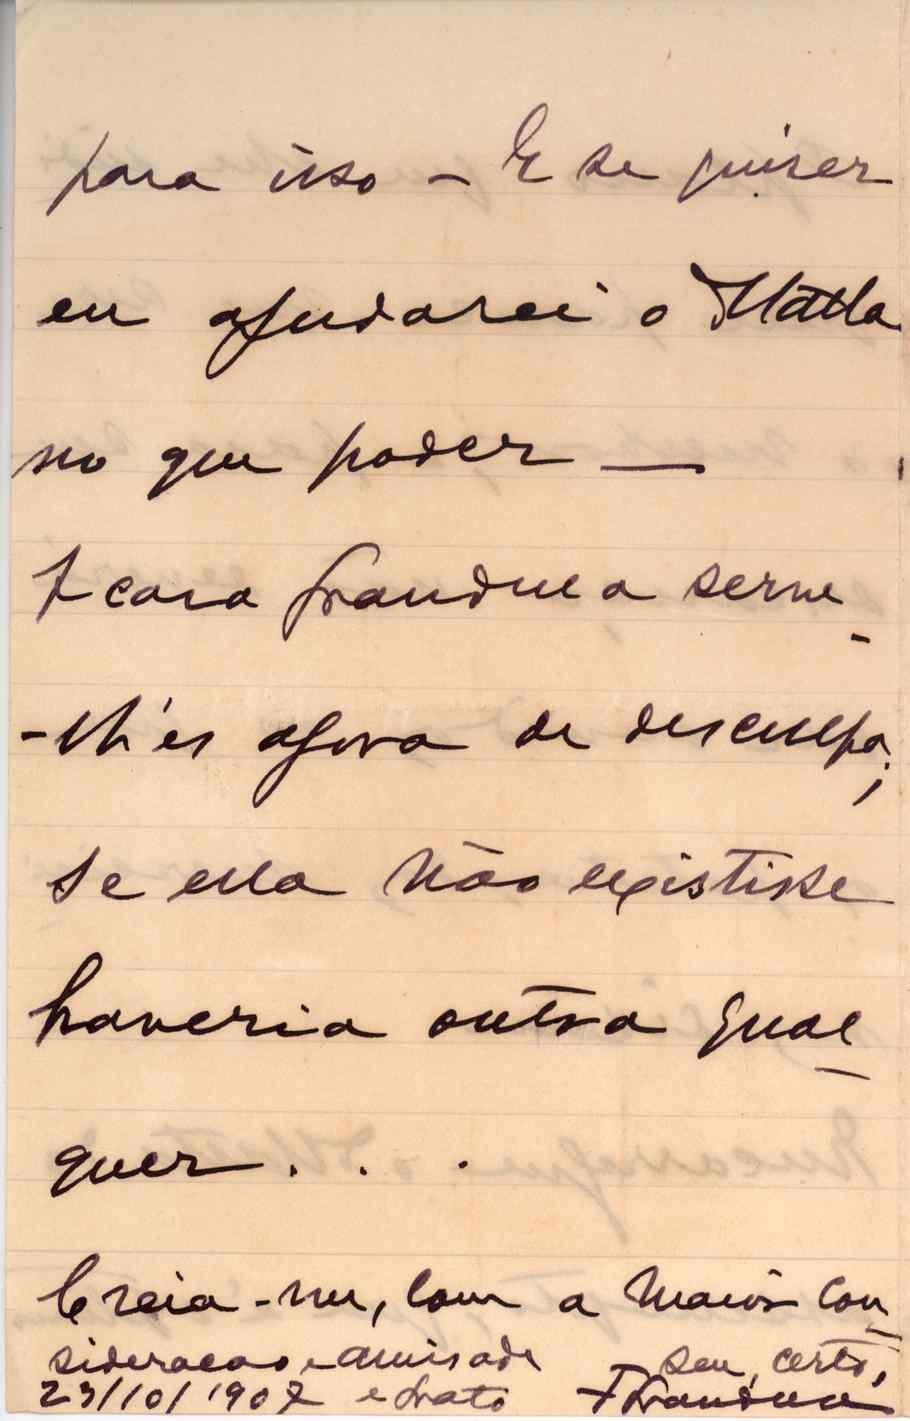 para isso – E se quiser
eu ajudarei o Matta
no que poder —
A casa Grandella serve-
-lh'es agora de desculpa;
se ella não existisse
haveria outra qual-
quer . . .
Creia-me, com a maior con-
sideração e amisade seu, certo,
23/10/1907 e grato F Grandella